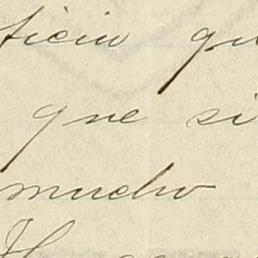 ticia qu
que si
mucho